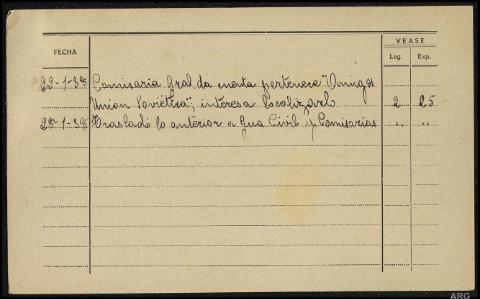 FECHA
VEASE
Leg. Exp.
22-1-38 Comisaria Gral da cuenta pertenece "Amigos
Union Soviética"; interesa localizarle 2 25
28-1-38 Traslado lo anterior a Gua Civil y Comisarias " "
ARG